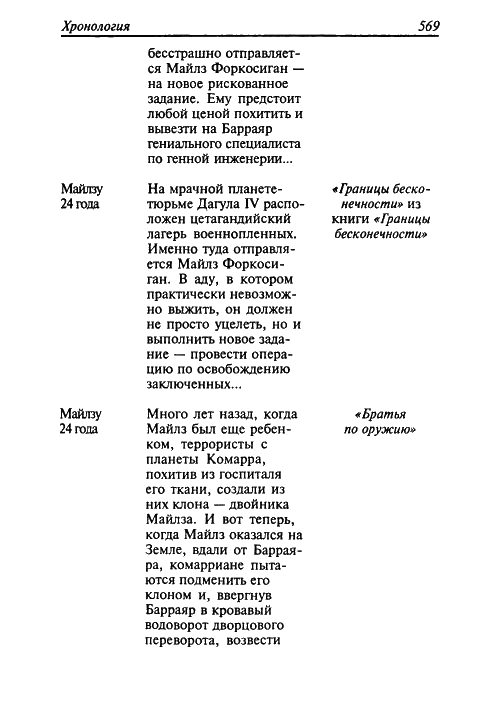 Хронология 569
бесстрашно отправляет-
ся Майлз Форкосиган —
на новое рискованное
задание. Ему предстоит
любой ценой похитить и
вывезти на Барраяр
гениального специалиста
по генной инженерии...
Майлзу На мрачной планете- «Границы беско-
24 года тюрьме Дагула IV распо- нечности» из
ложен цетагандийский книги «Границы
лагерь военнопленных. бесконечности»
Именно туда отправля-
ется Майлз Форкоси-
ган. В аду, в котором
практически невозмож-
но выжить, он должен
не просто уцелеть, но и
выполнить новое зада-
ние — провести опера-
цию по освобождению
заключенных...
Майлзу Много лет назад, когда «Братья
24 года Майлз был еще ребен- по оружию»
ком, террористы с
планеты Комарра,
похитив из госпиталя
его ткани, создали из
них клона — двойника
Майлза. И вот теперь,
когда Майлз оказался на
Земле, вдали от Баррая-
ра, комарриане пыта-
ются подменить его
клоном и, ввергнув
Барраяр в кровавый
водоворот дворцового
переворота, возвести